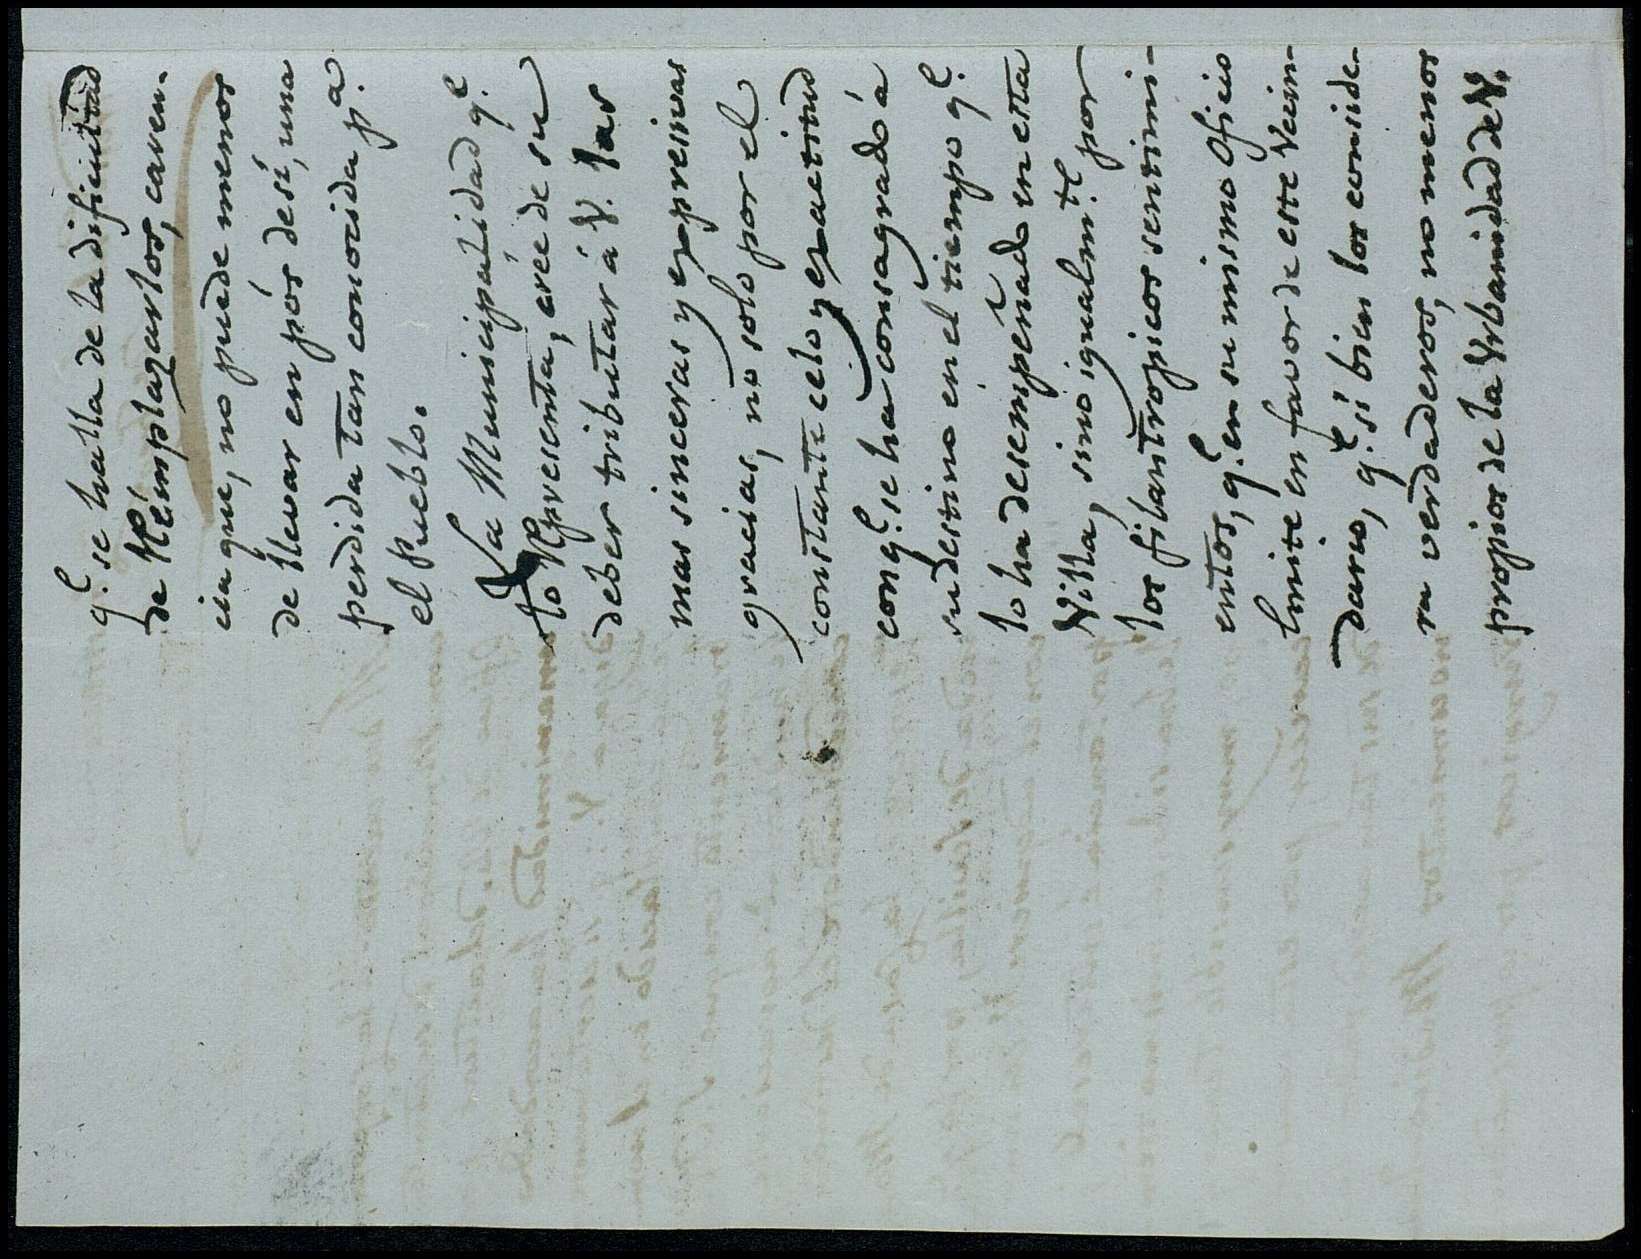 q.e se halla de la dificultad
de Réémplazarlos, caren-
cia que, no puede menos
de llevar en pós de sí, una
perdida tan conocida p.a
el Pueblo.
La Municipalidad q.e
lo Rpresenta, creé de su
deber tributar á V. las
mas sinceras y expresivas
gracias, no solo por el
constante celo y exactitud
con q.e se ha consagrado á
su destino en el tiempo q.e
lo ha desempeñado en esta
Villa, sino igualm.te por
los filantropicos sentimi-
entos, q.e en su mismo oficio
hmite en favor de este Vecin-
dario, q.e si bien los conside-
ra verdaderos, no menos
propios de la Urbanidad de V.